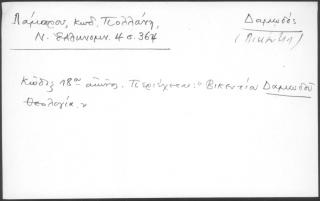 Λάμπρου, κωδ. Πολλάνη,
Ν. Ἑλληνομν. 4 σ. 364
Δαμωδός
Κῶδιξ 18ου αἰῶνος. Περιέχεται: " Βικεντίου Δαμωδοῦ
Θεολογία. "